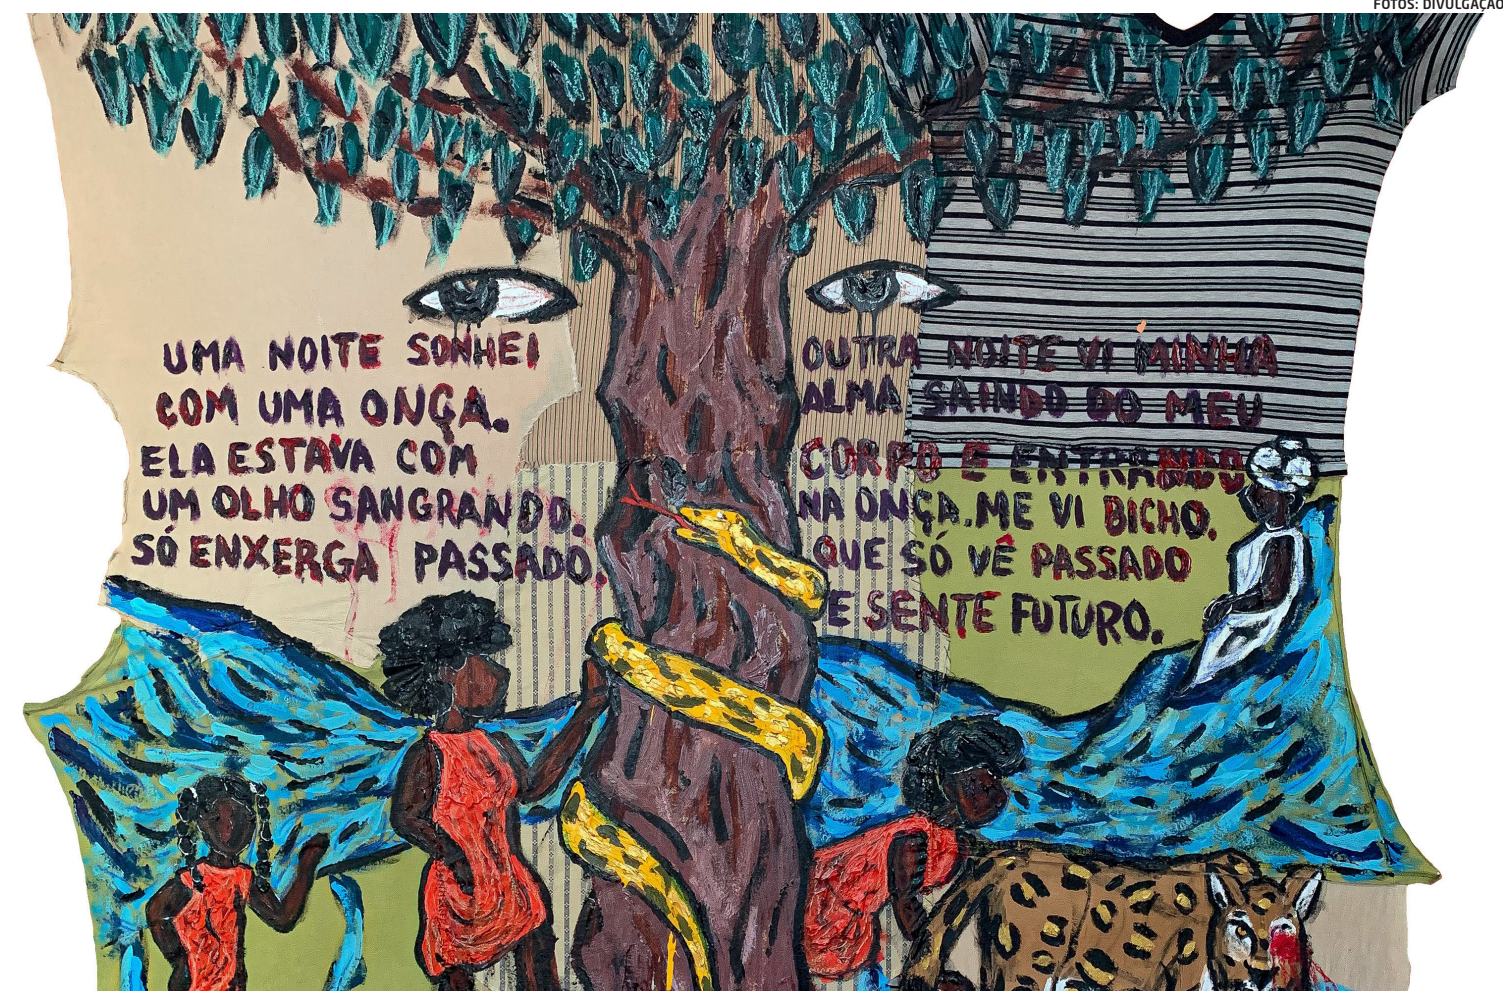 FOTOS: DIVULGAÇÃO
UMA NOITE SONHEI
COM UMA ONÇA.
ELA ESTAVA COM
UM OLHO SANGRANDO.
SÓ ENXERGA PASSADO.
OUTRA NOITE VI MINHA
ALMA SAINDO DO MEU
CORPO E ENTRANDO
NA ONÇA. ME VI BICHO.
QUE SÓ VÊ PASSADO
E SENTE FUTURO.